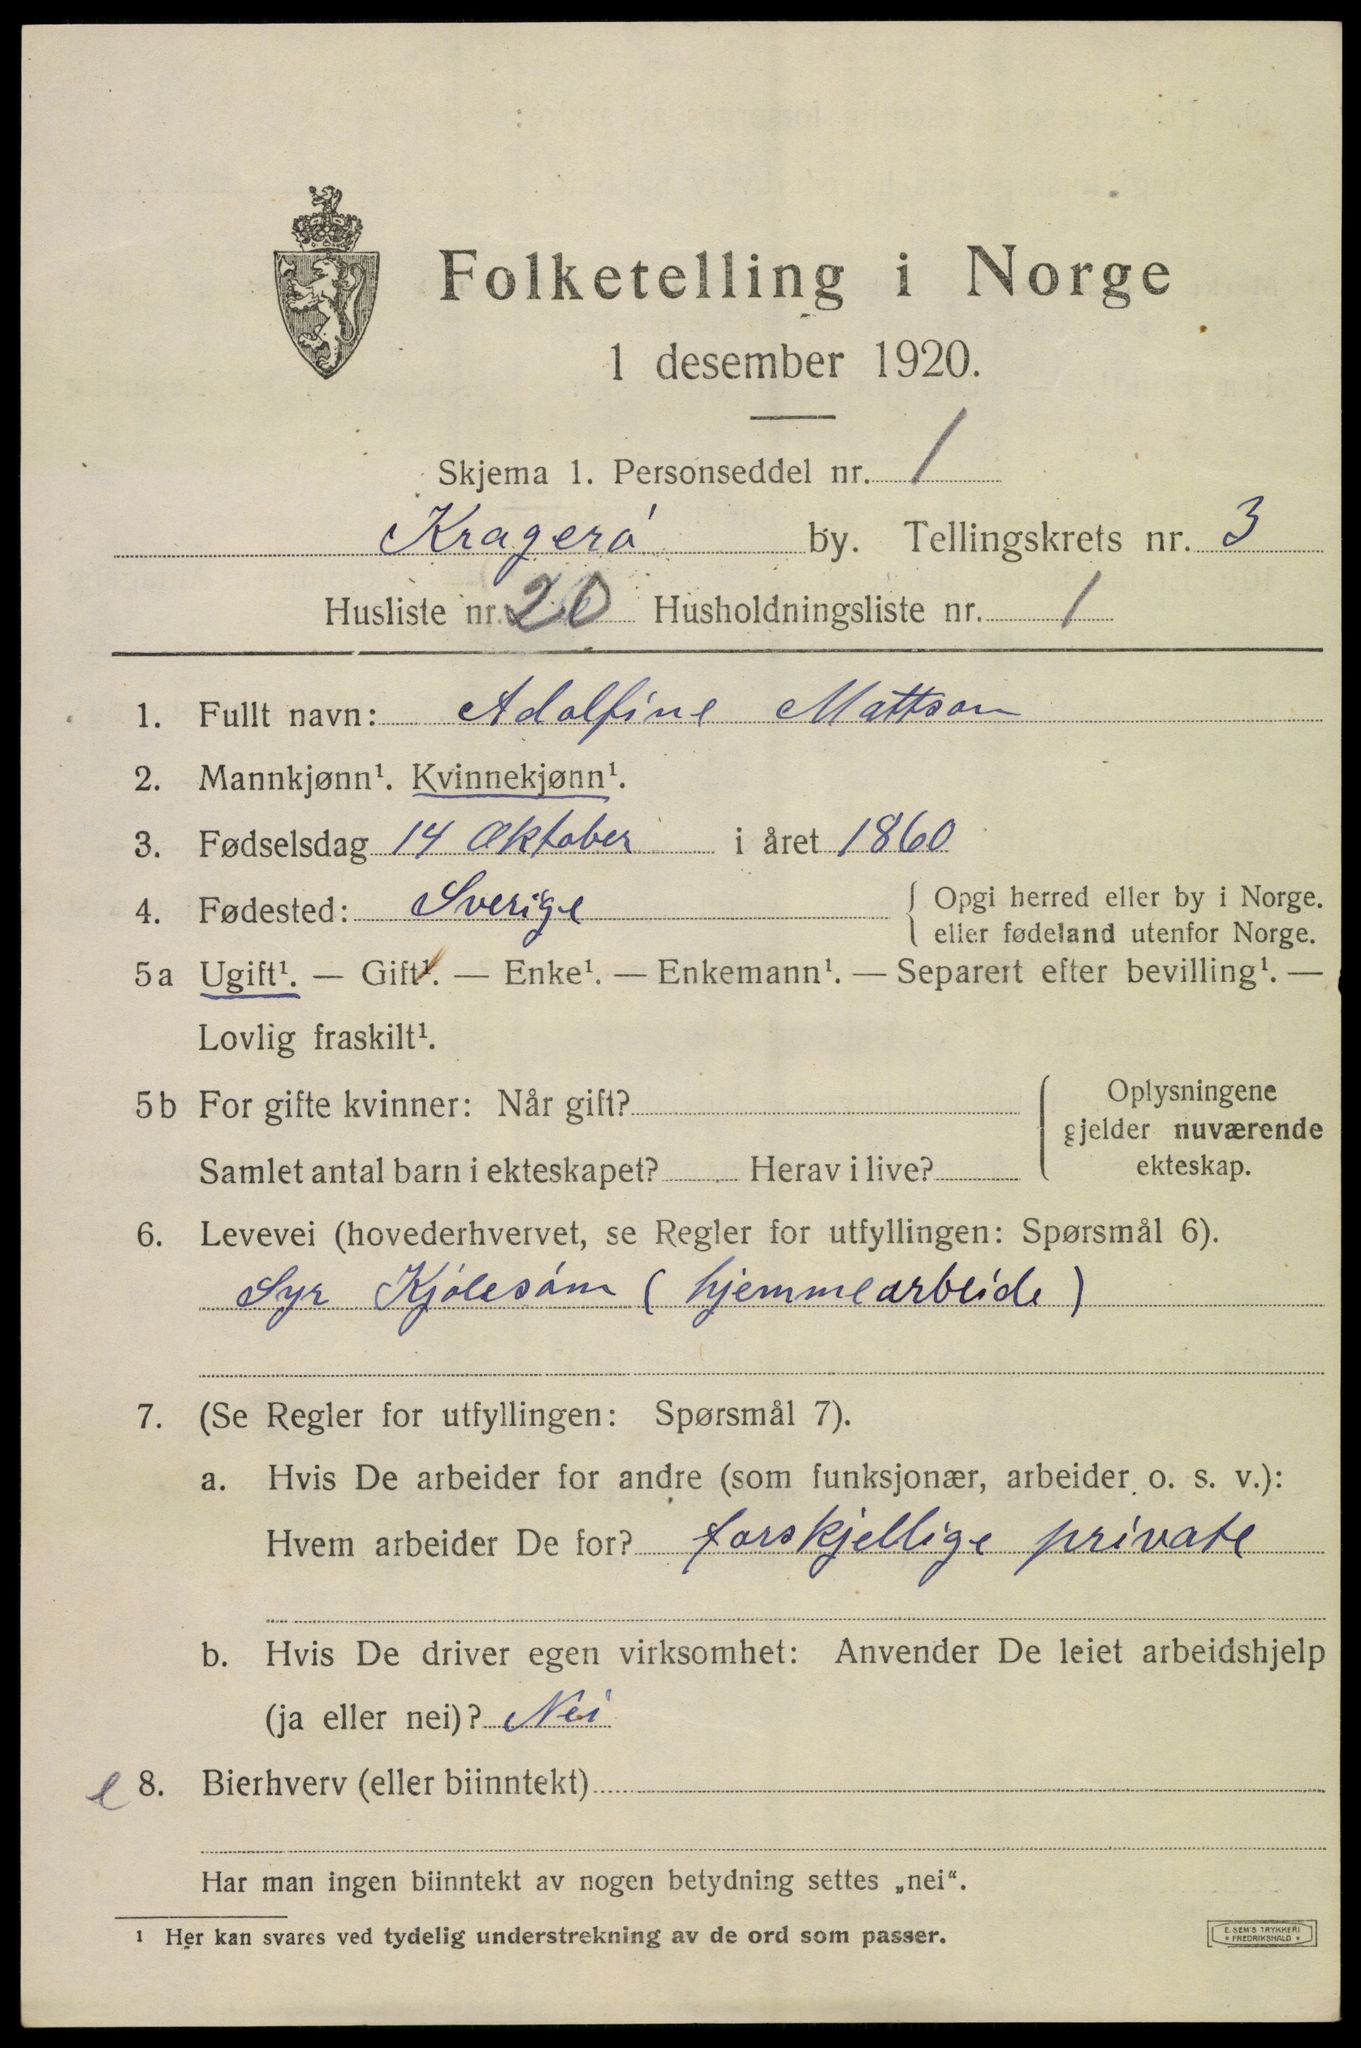 Folketelling i Norge
1 desember 1920.
Skjema 1. Personseddel nr. 1
Kragerö by. Tellingskrets nr. 3
Husliste nr. 20 Husholdningsliste nr. 1
1. Fullt navn: Adolfine Mattson
2. Mannkjønn¹. Kvinnekjønn¹.
3. Fødselsdag 14 Oktober i året 1860
4. Fødested: Sverige { Opgi herred eller by i Norge.
eller fødeland utenfor Norge.
5a Ugift¹. — Gift¹. — Enke¹. — Enkemann¹. — Separert efter bevilling¹. —
Lovlig fraskilt¹.
5b For gifte kvinner: Når gift?
Samlet antal barn i ekteskapet? Herav i live?
{ Oplysningene
gjelder nuværende
ekteskap.
6. Levevei (hovederhvervet, se Regler for utfyllingen: Spørsmål 6).
Syr Kjólesóm (hjemmearbeide)
7. (Se Regler for utfyllingen: Spørsmål 7).
a. Hvis De arbeider for andre (som funksjonær, arbeider o. s. v.):
Hvem arbeider De for? forskjellige private
b. Hvis De driver egen virksomhet: Anvender De leiet arbeidshjelp
(ja eller nei)? Nei
8. Bierhverv (eller biinntekt)
Har man ingen biinntekt av nogen betydning settes „nei“.
¹ Her kan svares ved tydelig understrekning av de ord som passer.
E. SEM'S TRYKKERI
FREDRIKSHALD